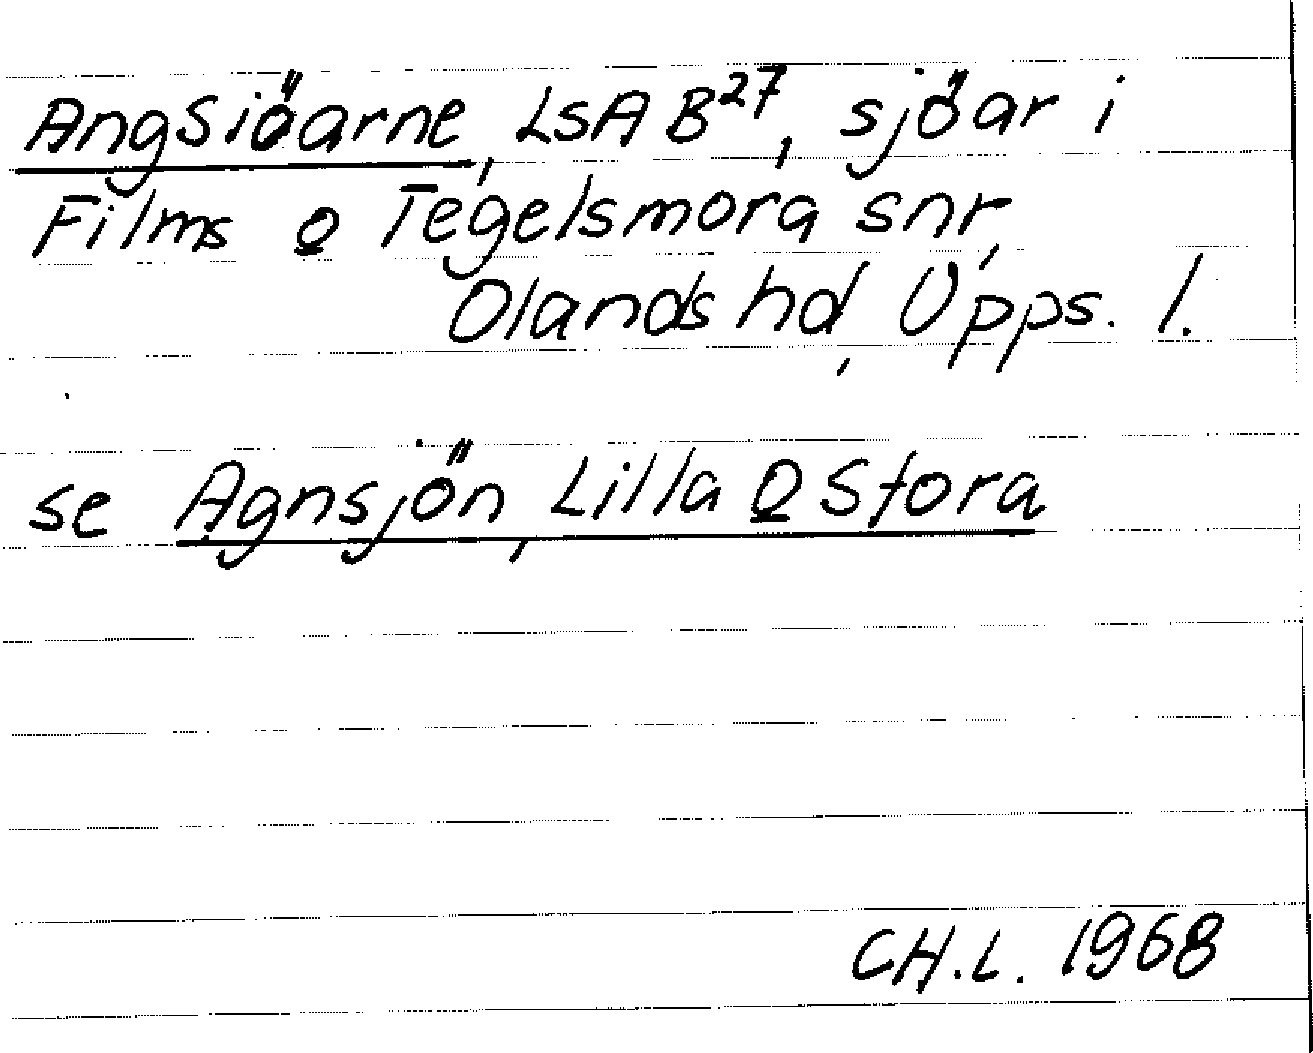 AngSiöarne, LSA B²⁷, sjöar i
Films o Tegelsmora snr,
Olands hd, Upps. l.
se Agnsjön, Lilla o Stora
CH.L. 1968